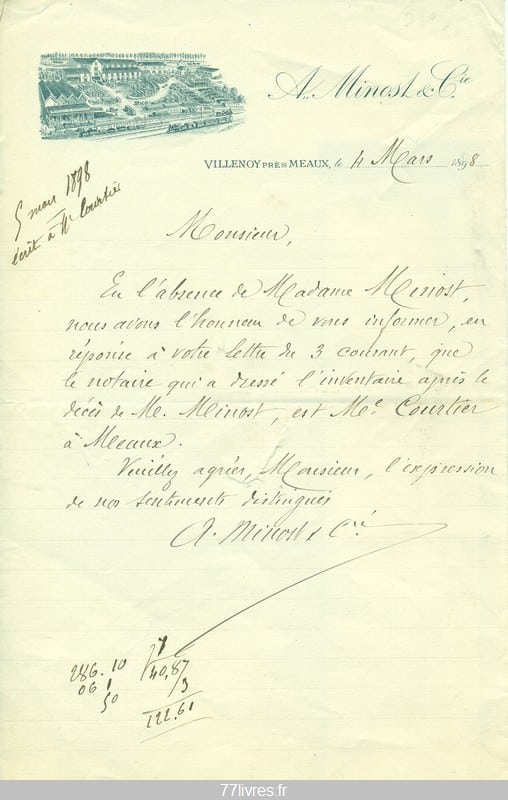 A. Minost & Cie
VILLENOY PRÈS MEAUX, le 4 Mars 1898
5 mars 1898
écrit à Me Courtier
Monsieur,
En l'absence de Madame Minost,
nous avons l'honneur de vous informer, en
réponse à votre lettre du 3 courant, que
le notaire qui a dressé l'inventaire après le
décès de M. Minost, est Me Courtier
à Meaux.
Veuillez agréer, Monsieur, l'expression
de nos sentiments distingués
A. Minost & Cie
286.10
06 1
50
40,87
3
122.61
77livres.fr